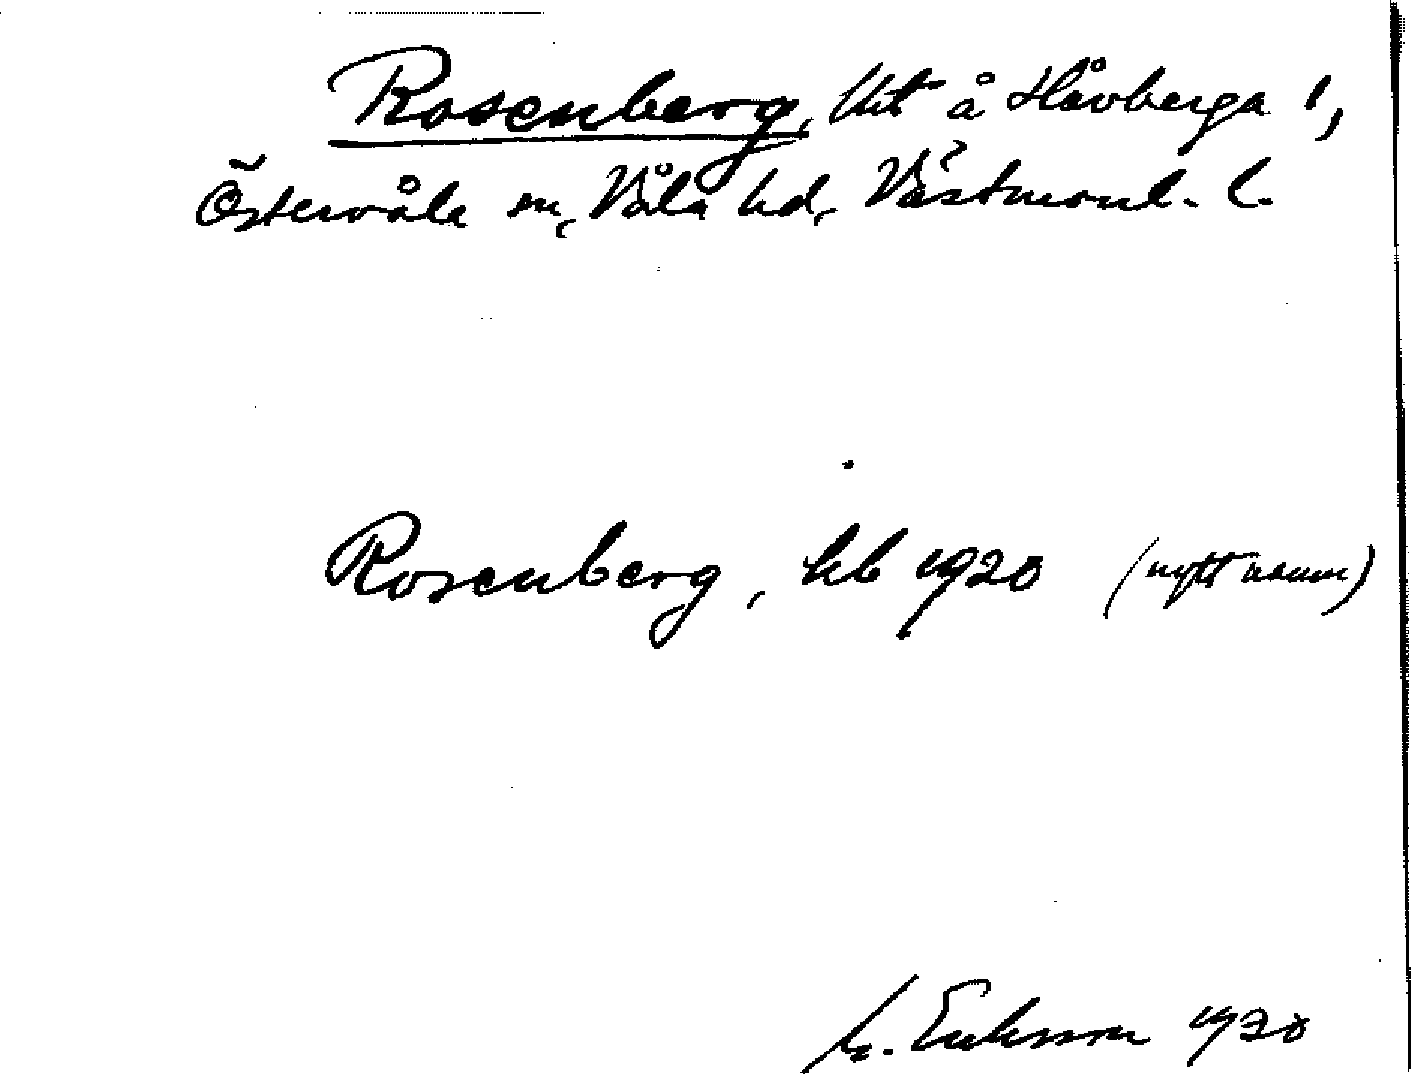 Rosenberg, lht å Håvberga 1,
Östervåla sn, Våla hd, Västmanl. l.
Rosenberg, hb 1920 (nytt namn)
M. Eriksson 1930